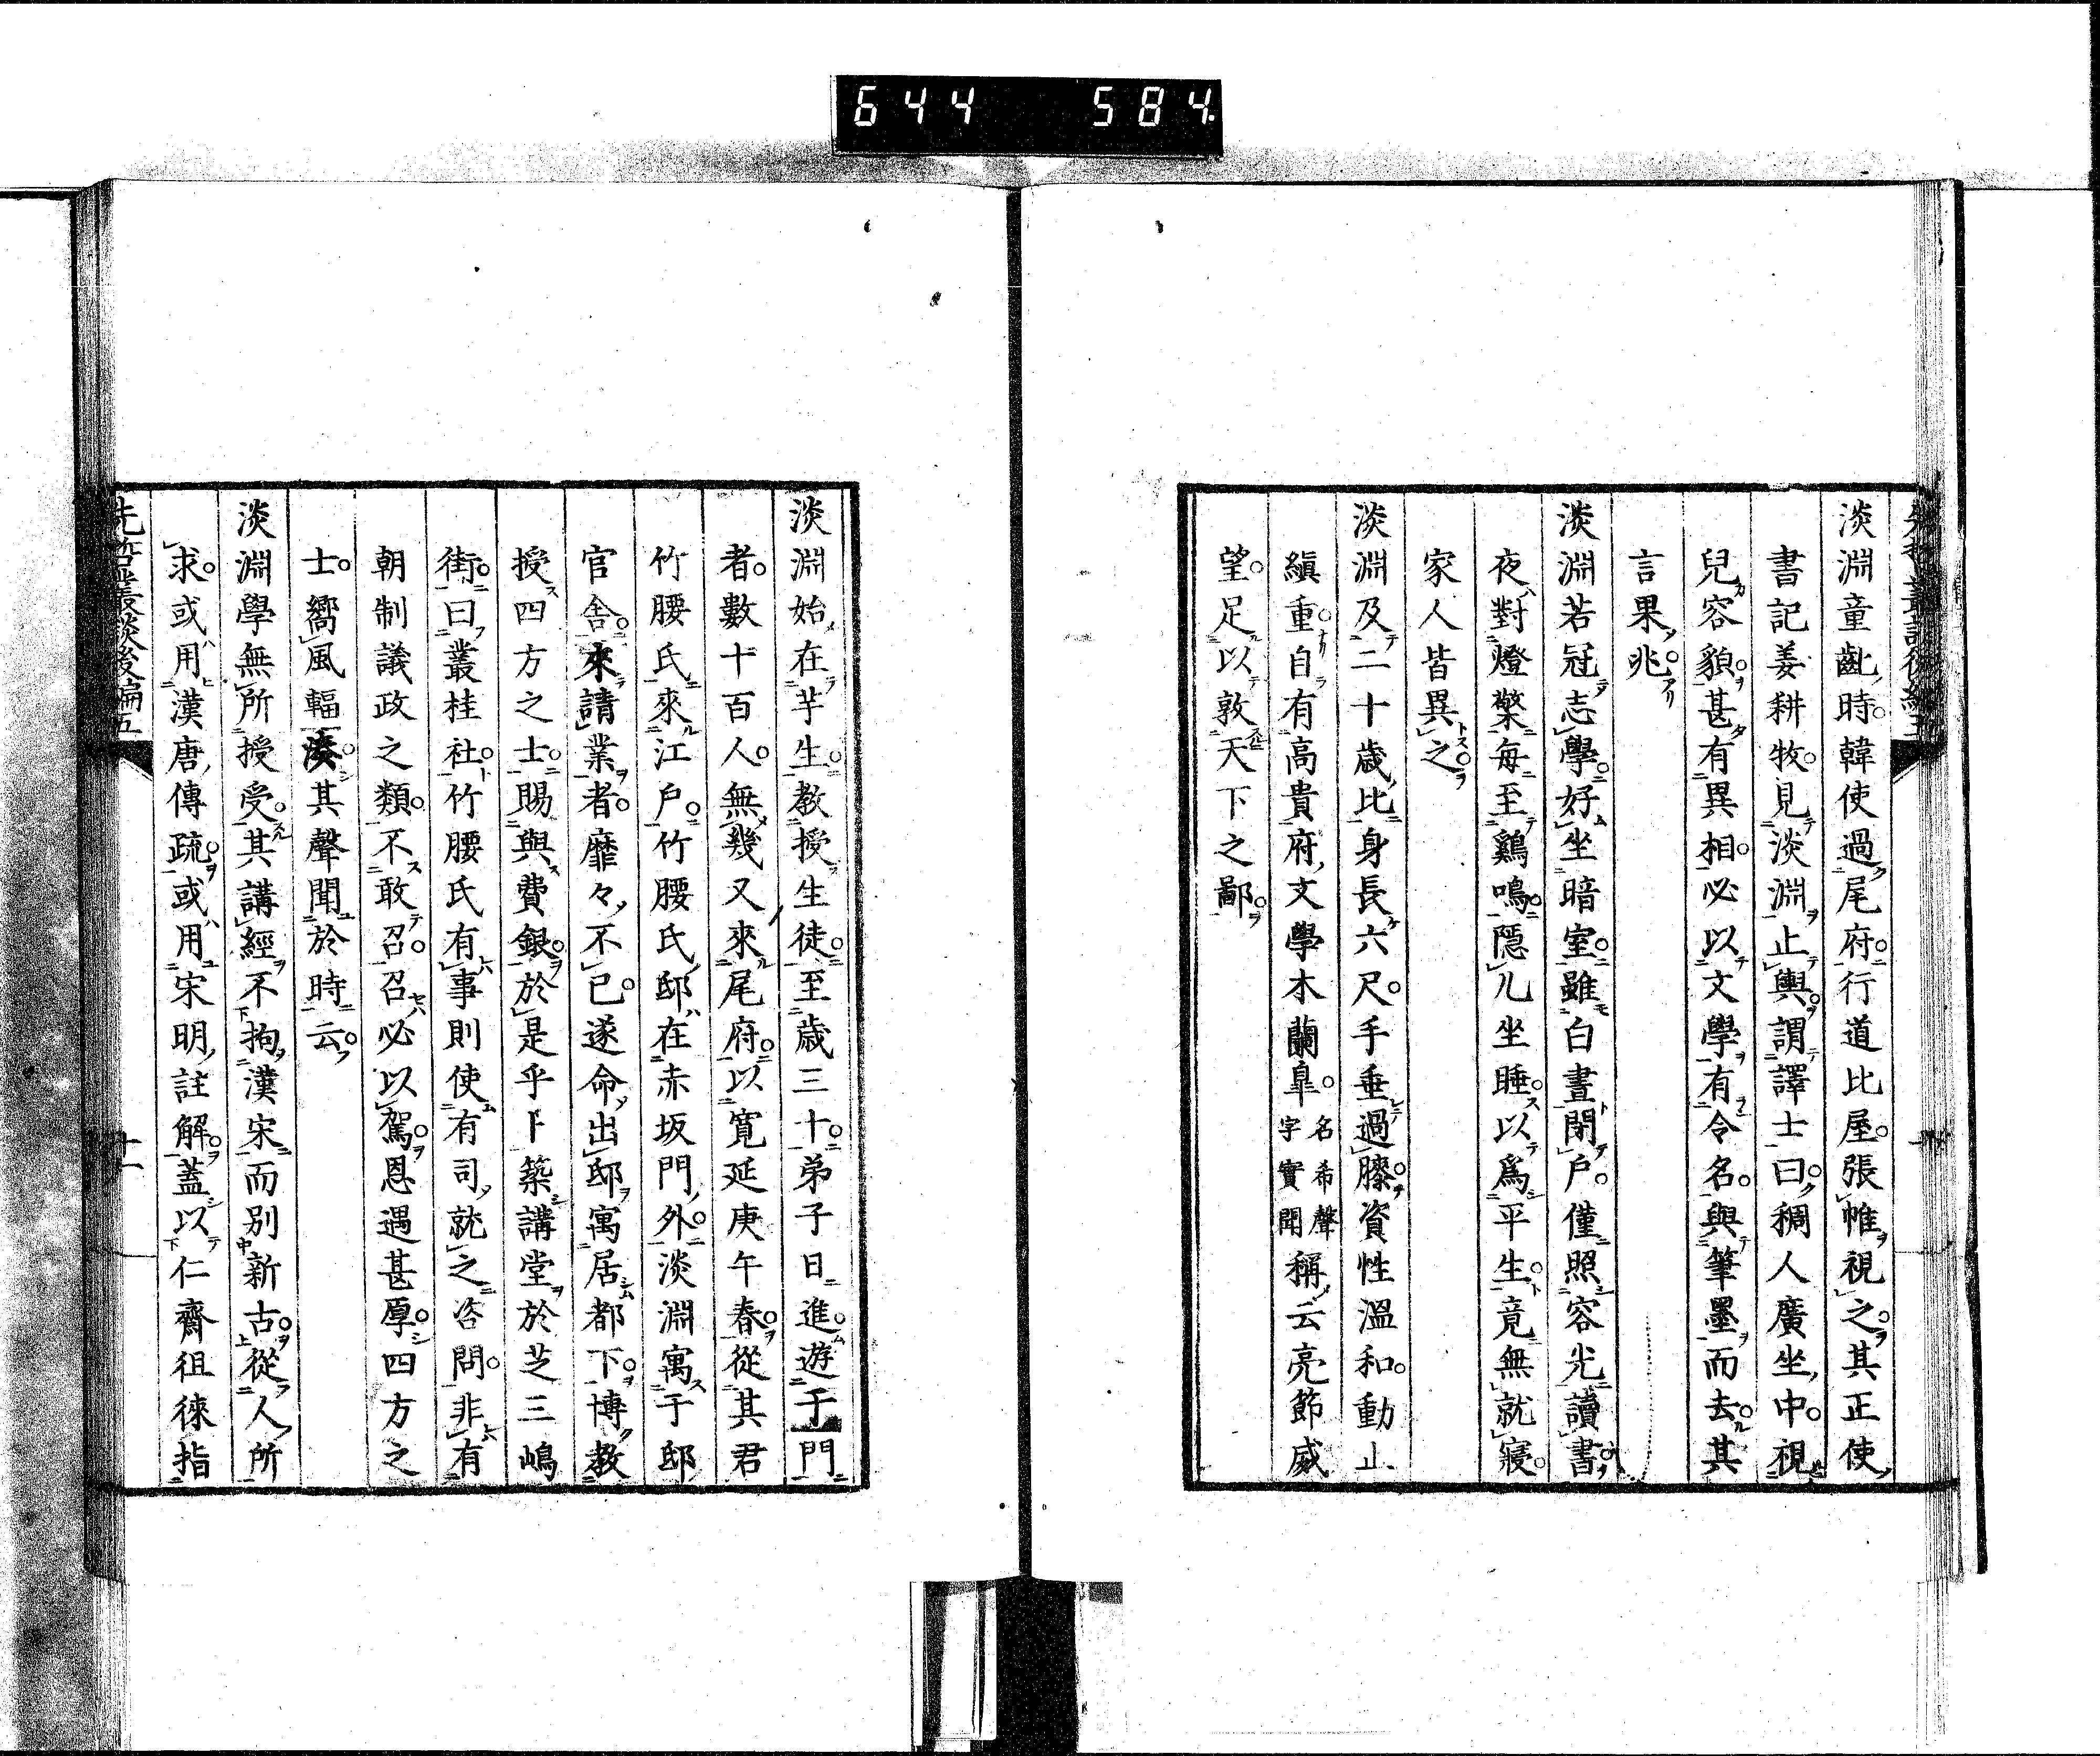 644 584
淡淵童齓時。韓使過尾府。行道比屋。張帷視之。其正使
書記姜耕牧。見淡淵止輿。謂譯士曰。稠人廣坐中。視
兒容貌。甚有異相。必以文學有令名。與筆墨而去。其
言果兆。
淡淵若冠志學。好坐暗室。雖白晝閉戶。僅照容光讀書。
夜對燈檠。每至鷄鳴。隱几坐睡。以爲平生。竟無就寢。
家人皆異之。
淡淵及二十歲。比身長六尺。手垂過膝。資性溫和。動止
縝重。自有高貴府。文學木蘭皐。名希聲字實聞稱云。亮節威
望。足以敦天下之鄙。
淡淵始在芋生。教授生徒。至歲三十。弟子日進。遊于門
者。數十百人。無幾又來尾府。以寬延庚午春。從其君
竹腰氏來江戶。竹腰氏邸在赤坂門外。淡淵寓于邸
官舍。來請業者。靡々不已。遂命出邸。寓居都下。博教
授四方之士。賜與費銀。於是乎卜築講堂於芝三嶋
街。曰叢桂社。竹腰氏有事則使有司就之咨問。非有
朝制議政之類。不敢召。召必以駕。恩遇甚厚。四方之
士。嚮風輻湊。其聲聞於時云。
淡淵學無所授受。其講經不拘漢宋。而別新古。從人所
求。或用漢唐傳疏。或用宋明註解。蓋以仁齋徂徠指
先哲叢談後編五
十一